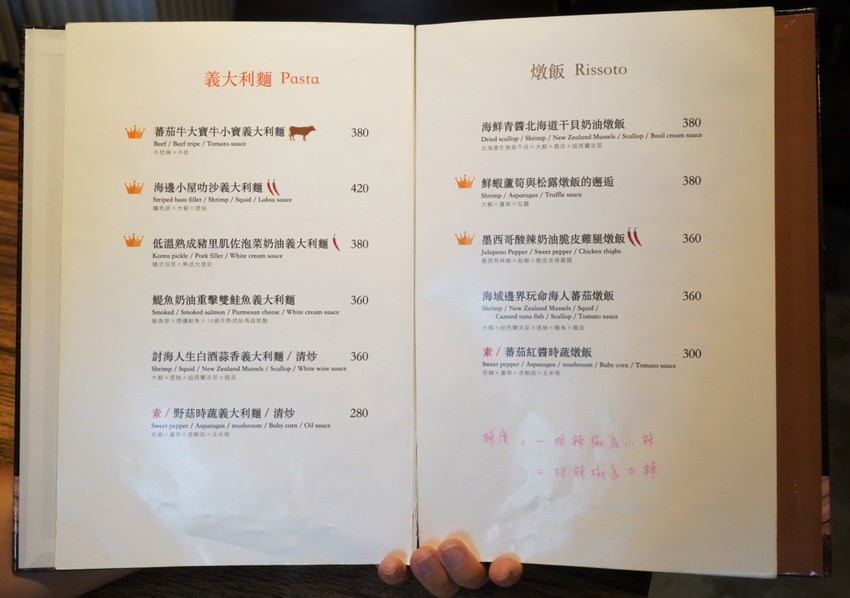 義大利麵 Pasta
蕃茄牛大寶牛小寶義大利麵 380
Beef / Beef tripe / Tomato sauce
牛肋條×牛肚
海邊小屋叻沙義大利麵 420
Striped bass fillet / Shrimp / Squid / Laksa sauce
鱸魚排×大蝦×透抽
低溫熟成豬里肌佐泡菜奶油義大利麵 380
Korea pickle / Pork fillet / White cream sauce
韓式泡菜×熟成大里肌
鯷魚奶油重擊雙鮭魚義大利麵 360
Smoked / Smoked salmon / Parmesan cheese / White cream sauce
鮭魚排×煙燻鮭魚×16個月熟成帕馬森乾酪
討海人生白酒蒜香義大利麵 / 清炒 360
Shrimp / Squid / New Zealand Mussels / Scallop / White wine sauce
大蝦×透抽×紐西蘭淡菜×扇貝
素 / 野菇時蔬義大利麵 / 清炒 280
Sweet pepper / Asparagus / mushroom / Baby corn / Oil sauce
彩椒×蘆筍×杏鮑菇×玉米筍
燉飯 Rissoto
海鮮青醬北海道干貝奶油燉飯 380
Dried scallop / Shrimp / New Zealand Mussels / Scallop / Basil cream sauce
北海道生食級干貝×大蝦×扇貝×紐西蘭淡菜
鮮蝦蘆筍與松露燉飯的邂逅 380
Shrimp / Asparagus / Truffle sauce
大蝦×蘆筍×松露
墨西哥酸辣奶油脆皮雞腿燉飯 360
Jalapeno Pepper / Sweet pepper / Chicken thighs
墨西哥辣椒×甜椒×脆皮去骨雞腿
海域邊界玩命海人蕃茄燉飯 360
Shrimp / New Zealand Mussels / Squid /
Canned tuna fish / Scallop / Tomato sauce
大蝦×紐西蘭淡菜×透抽×鮪魚×扇貝
素 / 蕃茄紅醬時蔬燉飯 300
Sweet pepper / Asparagus / mushroom / Baby corn / Tomato sauce
彩椒×蘆筍×杏鮑菇×玉米筍
辣度:一根辣椒為小辣
二根辣椒為中辣